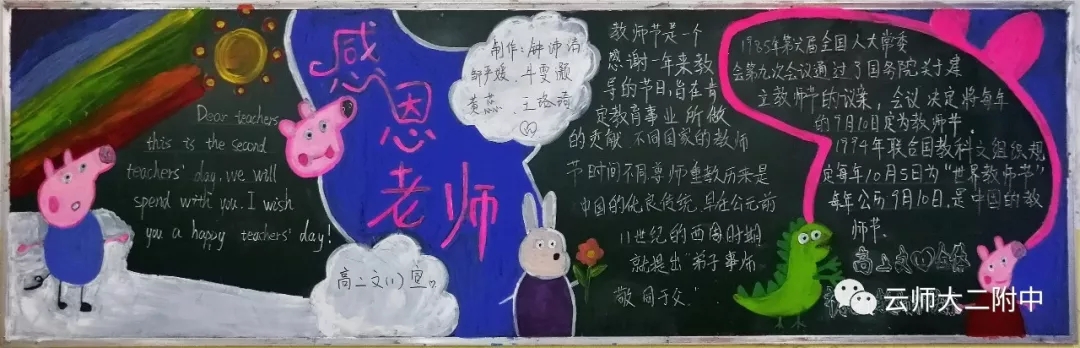 Dear teachers
this is the second
teachers' day. we will
spend with you. I wish
you a happy teachers' day!
感恩
老师
制作:
高二文(1)宣。
教师节是一个
感谢一年来教
导的节日,旨在肯
定教育事业所做
的贡献.不同国家的教师
节时间不同.尊师重教历来是
中国的优良传统,早在公元前
11世纪的西周时期
就提出"弟子事师
敬同于父."
1985年第六届全国人大常委
会第九次会议通过了国务院关于建
立教师节的议案,会议决定将每年
的9月10日定为教师节.
1994年联合国教科文组织规
定每年10月5日为"世界教师节"
每年公历9月10日,是中国的教
师节.
云师大二附中